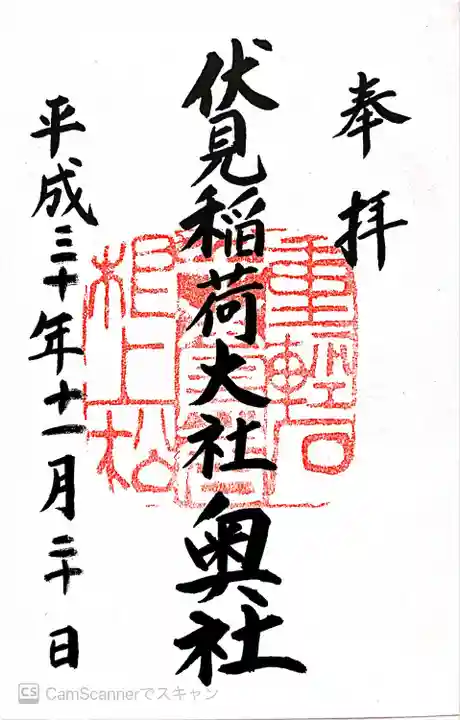 奉拝
伏見稲荷大社奥社
平成三十年十一月二十日
重軽石
根上松
CS CamScannerでスキャン